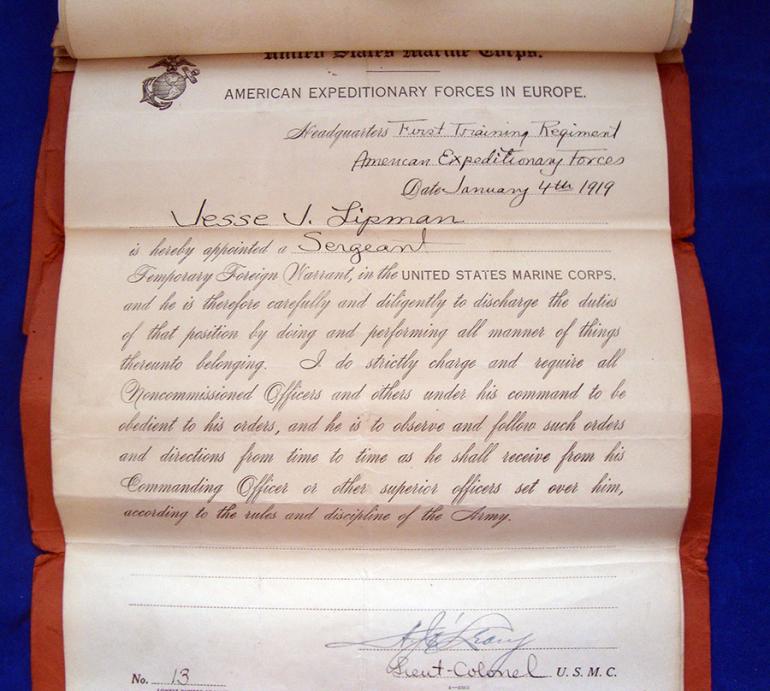 United States Marine Corps.
AMERICAN EXPEDITIONARY FORCES IN EUROPE.
Headquarters First Training Regiment
American Expeditionary Forces
Date January 4th 1919
Jesse J. Lipman
is hereby appointed a Sergeant
Temporary Foreign Warrant, in the UNITED STATES MARINE CORPS,
and he is therefore carefully and diligently to discharge the duties
of that position by doing and performing all manner of things
thereunto belonging. I do strictly charge and require all
Noncommissioned Officers and others under his command to be
obedient to his orders, and he is to observe and follow such orders
and directions from time to time as he shall receive from his
Commanding Officer or other superior officers set over him,
according to the rules and discipline of the Army.
Lieut-Colonel U. S. M. C.
No. 13